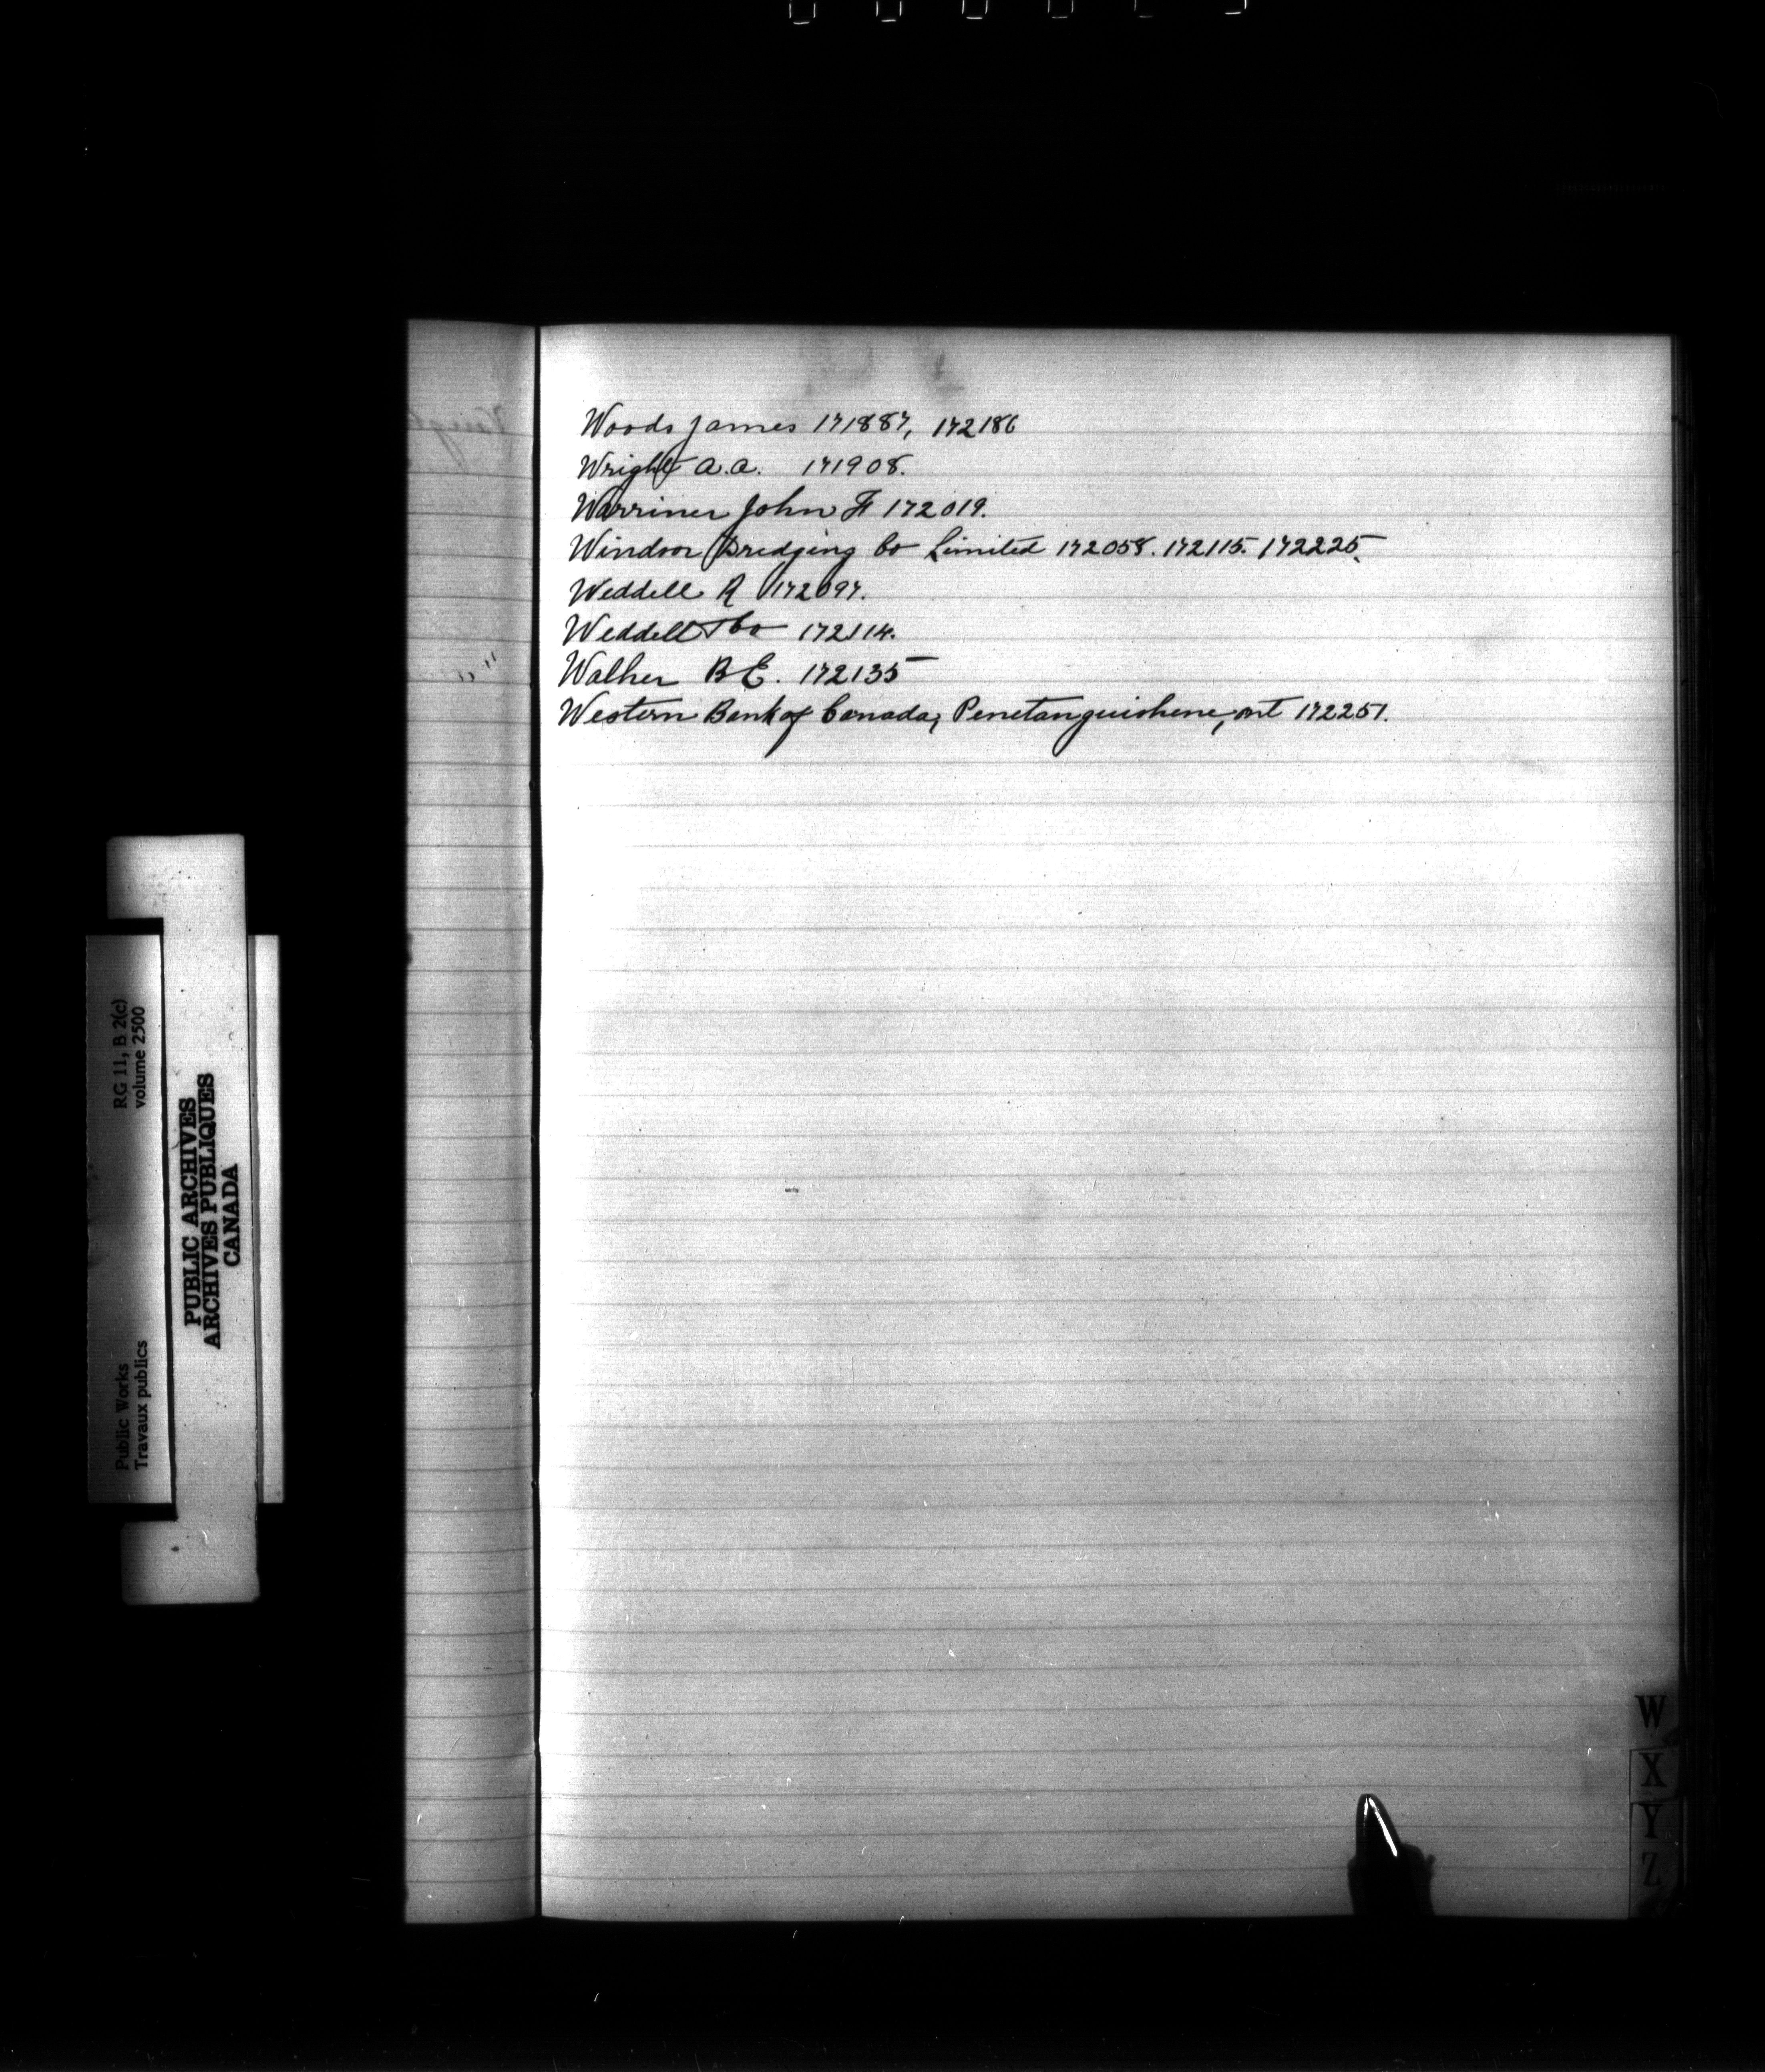 Woods James 171887, 172186
Wright A.A. 171908.
Warriner John F 172019.
Windsor Dredging Co Limited 172058. 172115. 172225.
Weddell R 172097.
Weddell & Co 172114.
Walker B E. 172135
Western Bank of Canada, Penetanguishene, Ont 172251.
RG 11, B 2(c)
volume 2500
Public Works
Travaux publics
PUBLIC ARCHIVES
ARCHIVES PUBLIQUES
CANADA
W
X
Y
Z